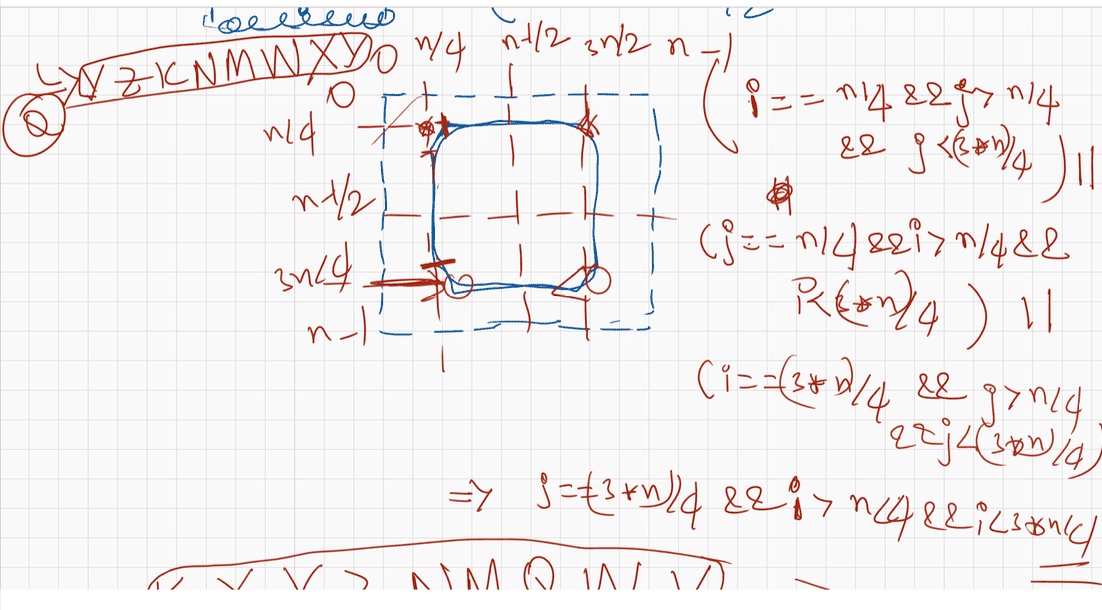 VZKNMWXY
Q
0 n/4 n-1/2 3n/2 n-1
0
n/4
n-1/2
3n/4
n-1
( i == n/4 && j > n/4
&& j < (3*n)/4 ) ||
(j == n/4 && i > n/4 &&
i < (3*n)/4 ) ||
(i == (3*n)/4 && j > n/4
&& j < (3*n)/4)
=> j == (3*n)/4 && i > n/4 && i < 3*n/4